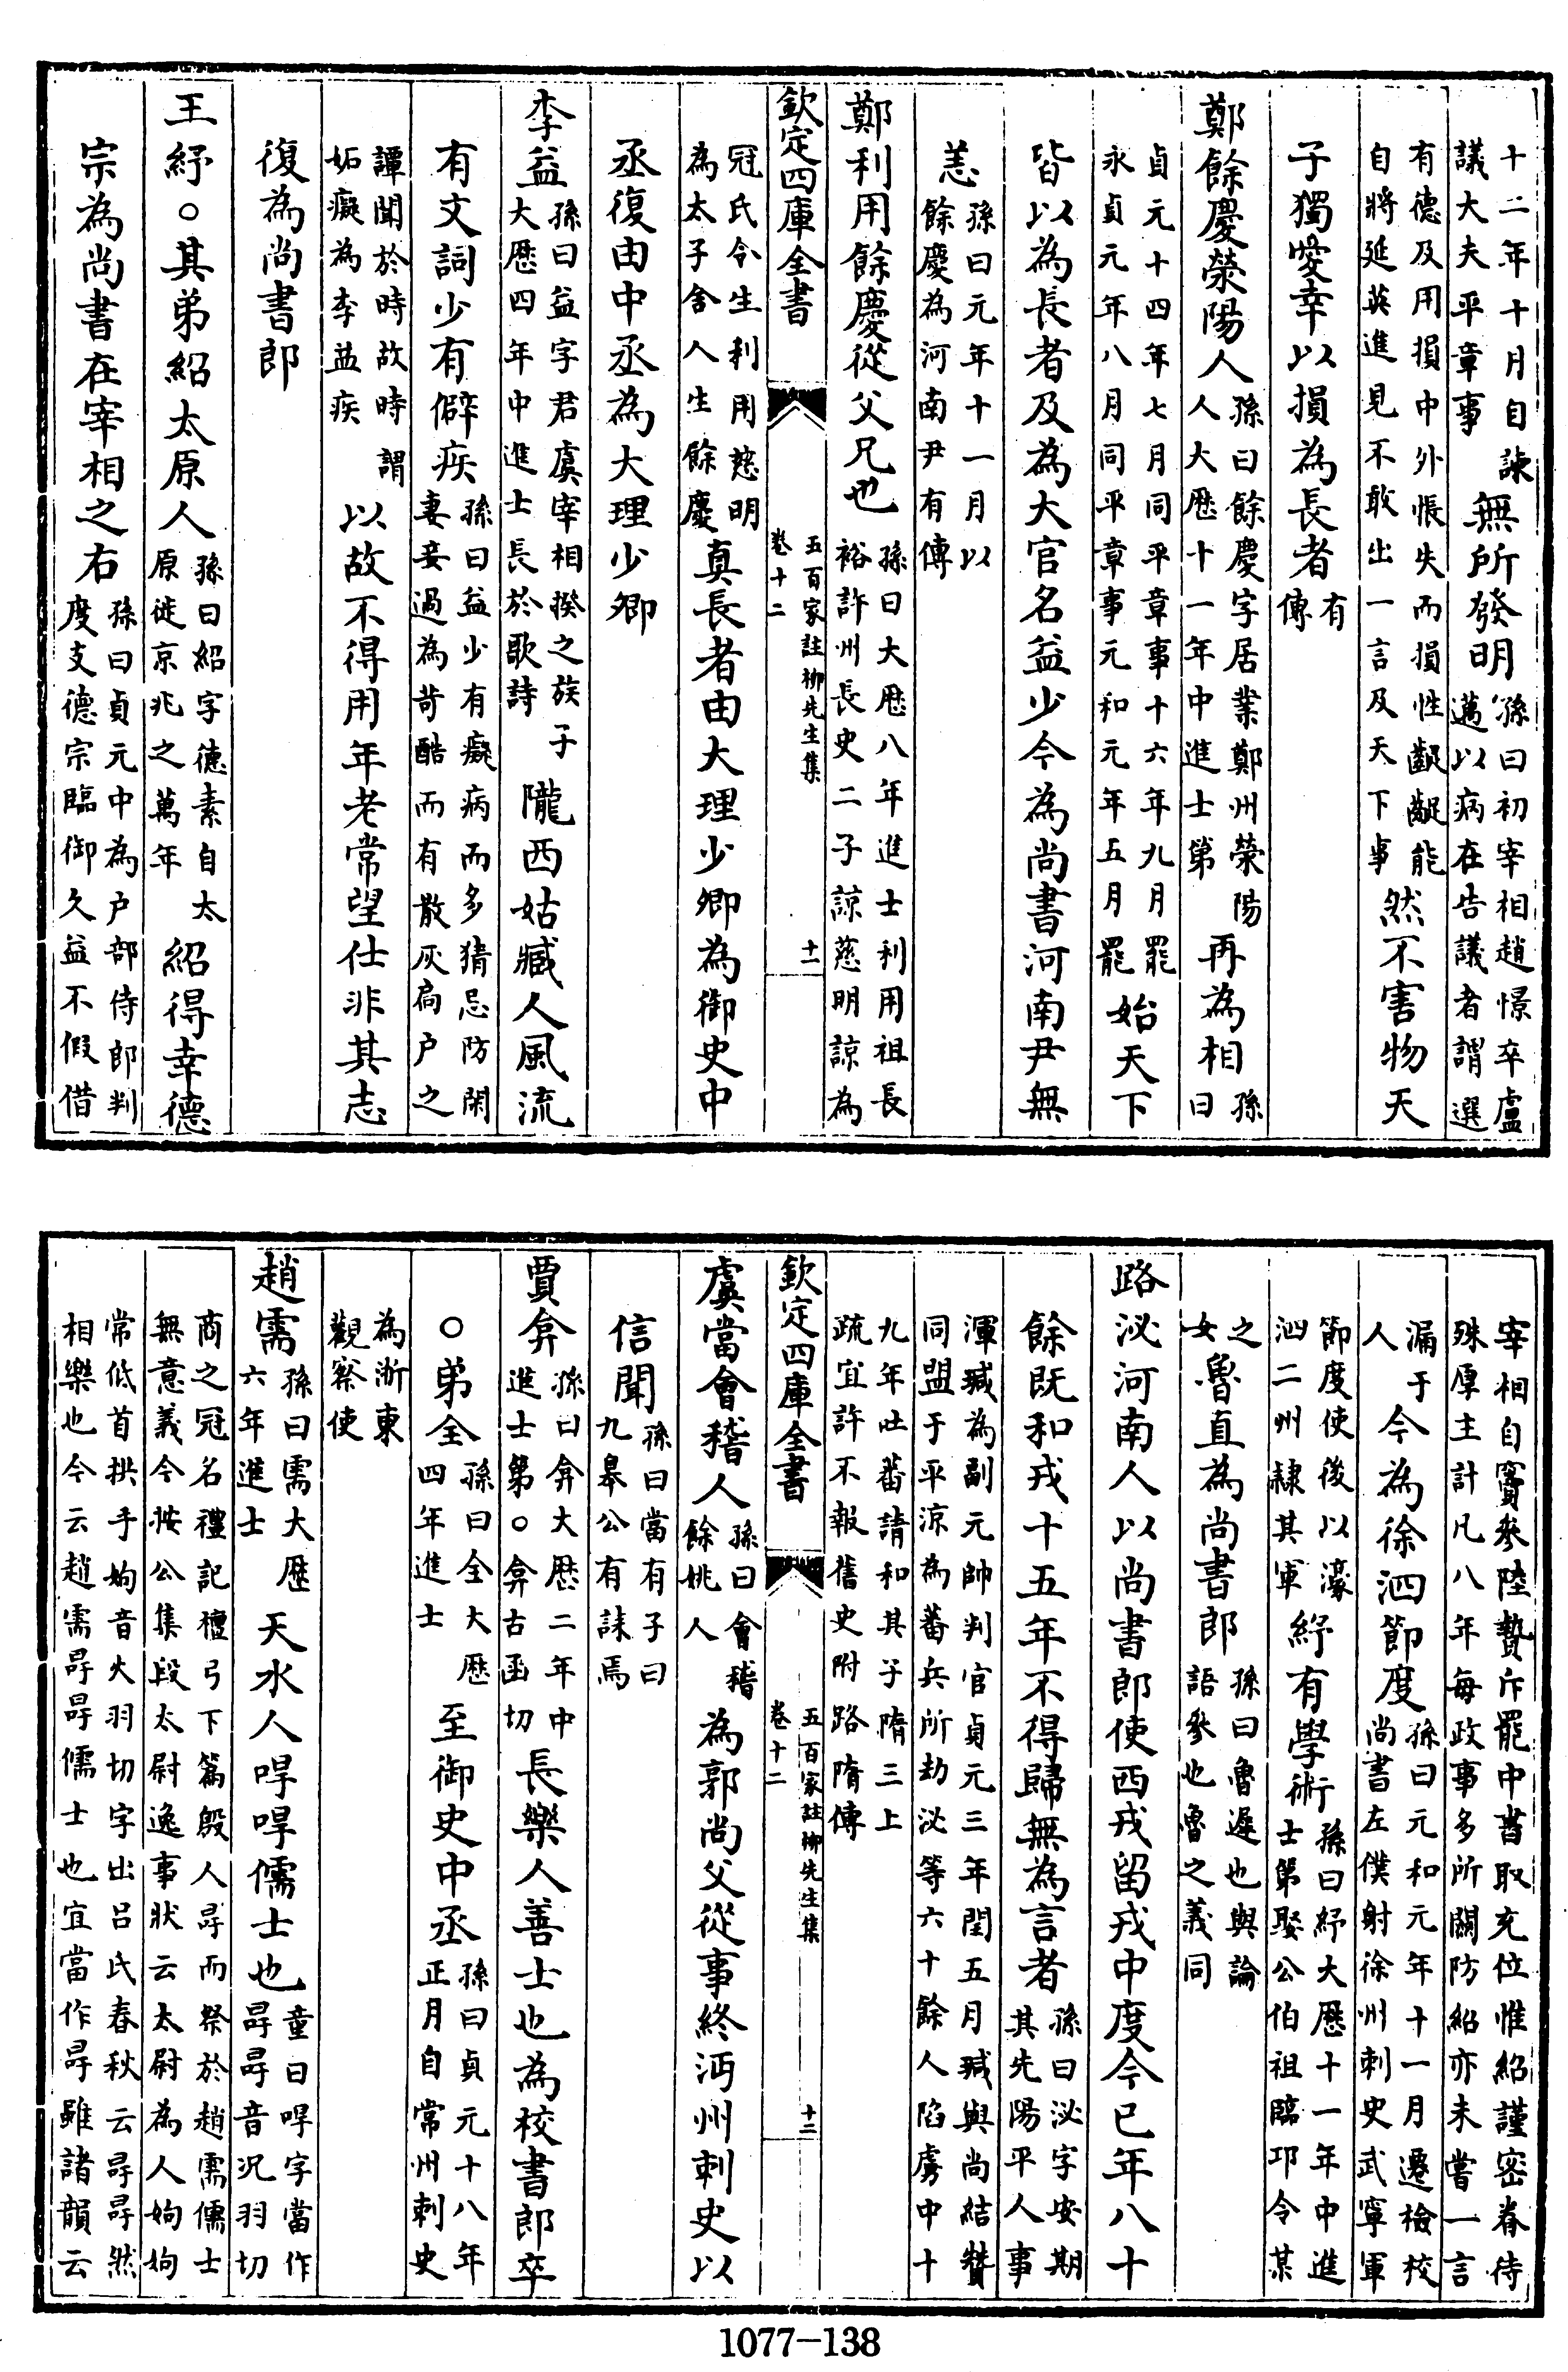 十二年十月自諫
議大夫平章事
無所發明
孫曰初宰相趙憬卒盧
邁以病在告議者謂選
有德及用損中外悵失而損性齪齪能
自將延英進見不敢出一言及天下事
然不害物天
子獨愛幸以損為長者
有
傳
鄭餘慶滎陽人
孫曰餘慶字居業鄭州滎陽
人大歴十一年中進士第
再為相
孫
曰
貞元十四年七月同平章事十六年九月罷
永貞元年八月同平章事元和元年五月罷
始天下
皆以為長者及為大官名益少今為尚書河南尹無
恙
孫曰元年十一月以
餘慶為河南尹有傳
鄭利用餘慶從父兄也
孫曰大歴八年進士利用祖長
裕許州長史二子諒慈明諒為
欽定四庫全書
五百家註柳先生集
卷十二
十一
冠氏令生利用慈明
為太子舍人生餘慶
真長者由大理少卿為御史中
丞復由中丞為大理少卿
李益
孫曰益字君虞宰相揆之族子
大歴四年中進士長於歌詩
隴西姑臧人風流
有文詞少有僻疾
孫曰益少有癡病而多猜忌防閑
妻妾過為苛酷而有散灰扃户之
譚聞於時故時謂
妬癡為李益疾
以故不得用年老常望仕非其志
復為尚書郎
王紓○其弟紹太原人
孫曰紹字德素自太
原徙京兆之萬年
紹得幸德
宗為尚書在宰相之右
孫曰貞元中為户部侍郎判
度支德宗臨御久益不假借
宰相自竇參陸贄斥罷中書取充位惟紹謹密眷待
殊厚主計凡八年每政事多所關防紹亦未嘗一言
漏于
人
今為徐泗節度
孫曰元和元年十一月遷檢校
尚書左僕射徐州刺史武寧軍
節度使後以濠
泗二州隸其軍
紓有學術
孫曰紓大歴十一年中進
士第娶公伯祖臨邛令某
之
女
魯直為尚書郎
孫曰魯遲也與論
語參也魯之義同
路泌河南人以尚書郎使西戎留戎中度今已年八十
餘既和戎十五年不得歸無為言者
孫曰泌字安期
其先陽平人事
渾瑊為副元帥判官貞元三年閏五月瑊與尚結贊
同盟于平涼為蕃兵所劫泌等六十餘人陷虜中十
九年吐蕃請和其子隋三上
疏宜許不報舊史附路隋傳
欽定四庫全書
五百家註柳先生集
卷十二
十二
虞當會稽人
孫曰會稽
餘姚人
為郭尚父從事終沔州刺史以
信聞
孫曰當有子曰
九臯公有誄焉
賈弇
孫曰弇大歴二年中
進士第○弇古函切
長樂人善士也為校書郎卒
○弟全
孫曰全大歴
四年進士
至御史中丞
孫曰貞元十八年
正月自常州刺史
為浙東
觀察使
趙需
孫曰需大歴
六年進士
天水人哻哻儒士也
童曰哻字當作
冔冔音况羽切
商之冠名禮記檀弓下篇殷人冔而祭於趙需儒士
無意義今按公集段太尉逸事狀云太尉為人姁姁
常低首拱手姁音火羽切字出吕氏春秋云冔冔然
相樂也今云趙需冔冔儒士也宜當作冔雖諸韻云
1077-138